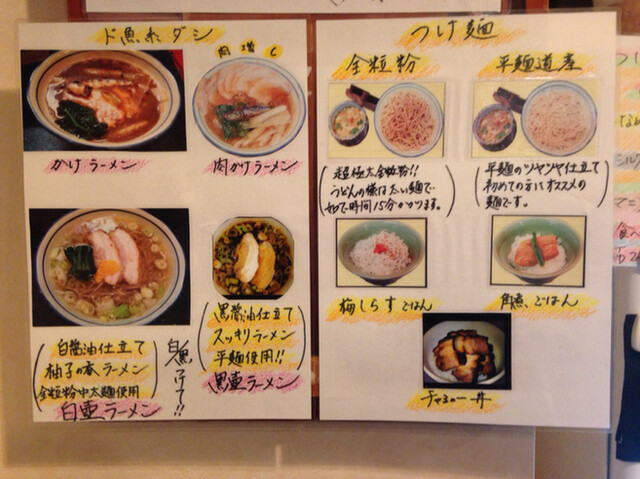 ド魚れダシ
肉増し
かけラーメン
肉かけラーメン
白醤油仕立て
柚子の香ラーメン
全粒粉中太麺使用
白壷ラーメン
黒醤油仕立て
スッキリラーメン
平麺使用!!
黒壷ラーメン
つけ麺
全粒粉
平麺道産
超極太全粒粉!!
うどんの様な太い麺で、
ゆで時間15分かかります。
平麺のツヤツヤ仕立て
初めての方にオススメの
麺です。
梅しらすごはん
角煮、ごはん
チャーシュー丼